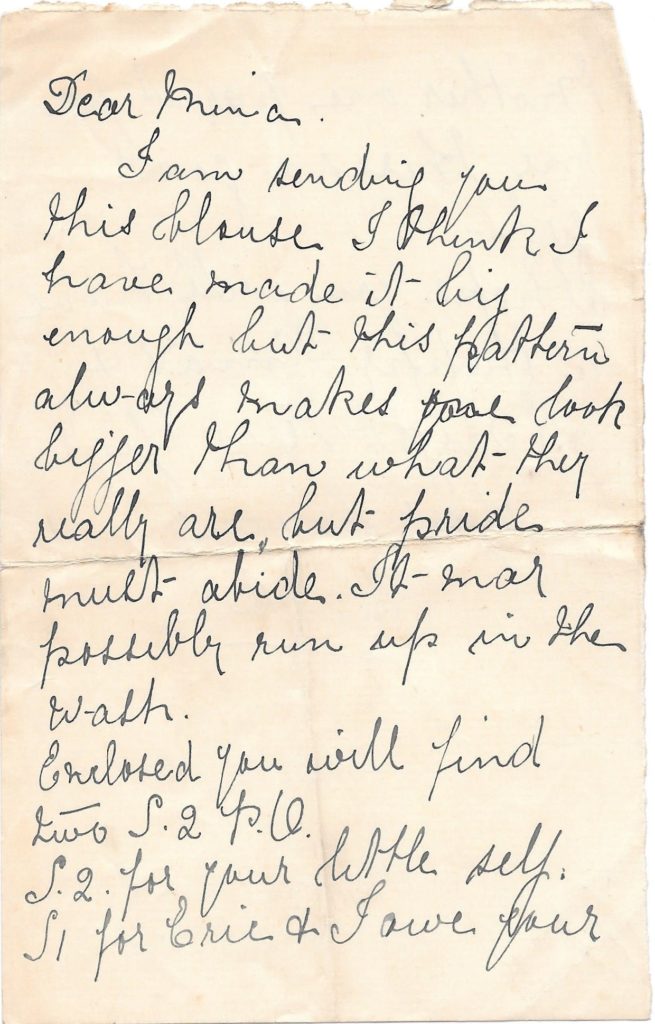 Dear Mina.
I am sending you
this blouse I think I
have made it big
enough but this pattern
always makes look
bigger than what they
really are, but pride
must abide. It mar
possibly run up in the
wash.
Enclosed you will find
two S.2 P.O.
S.2. for your little self.
S1 for Eric & I owe your